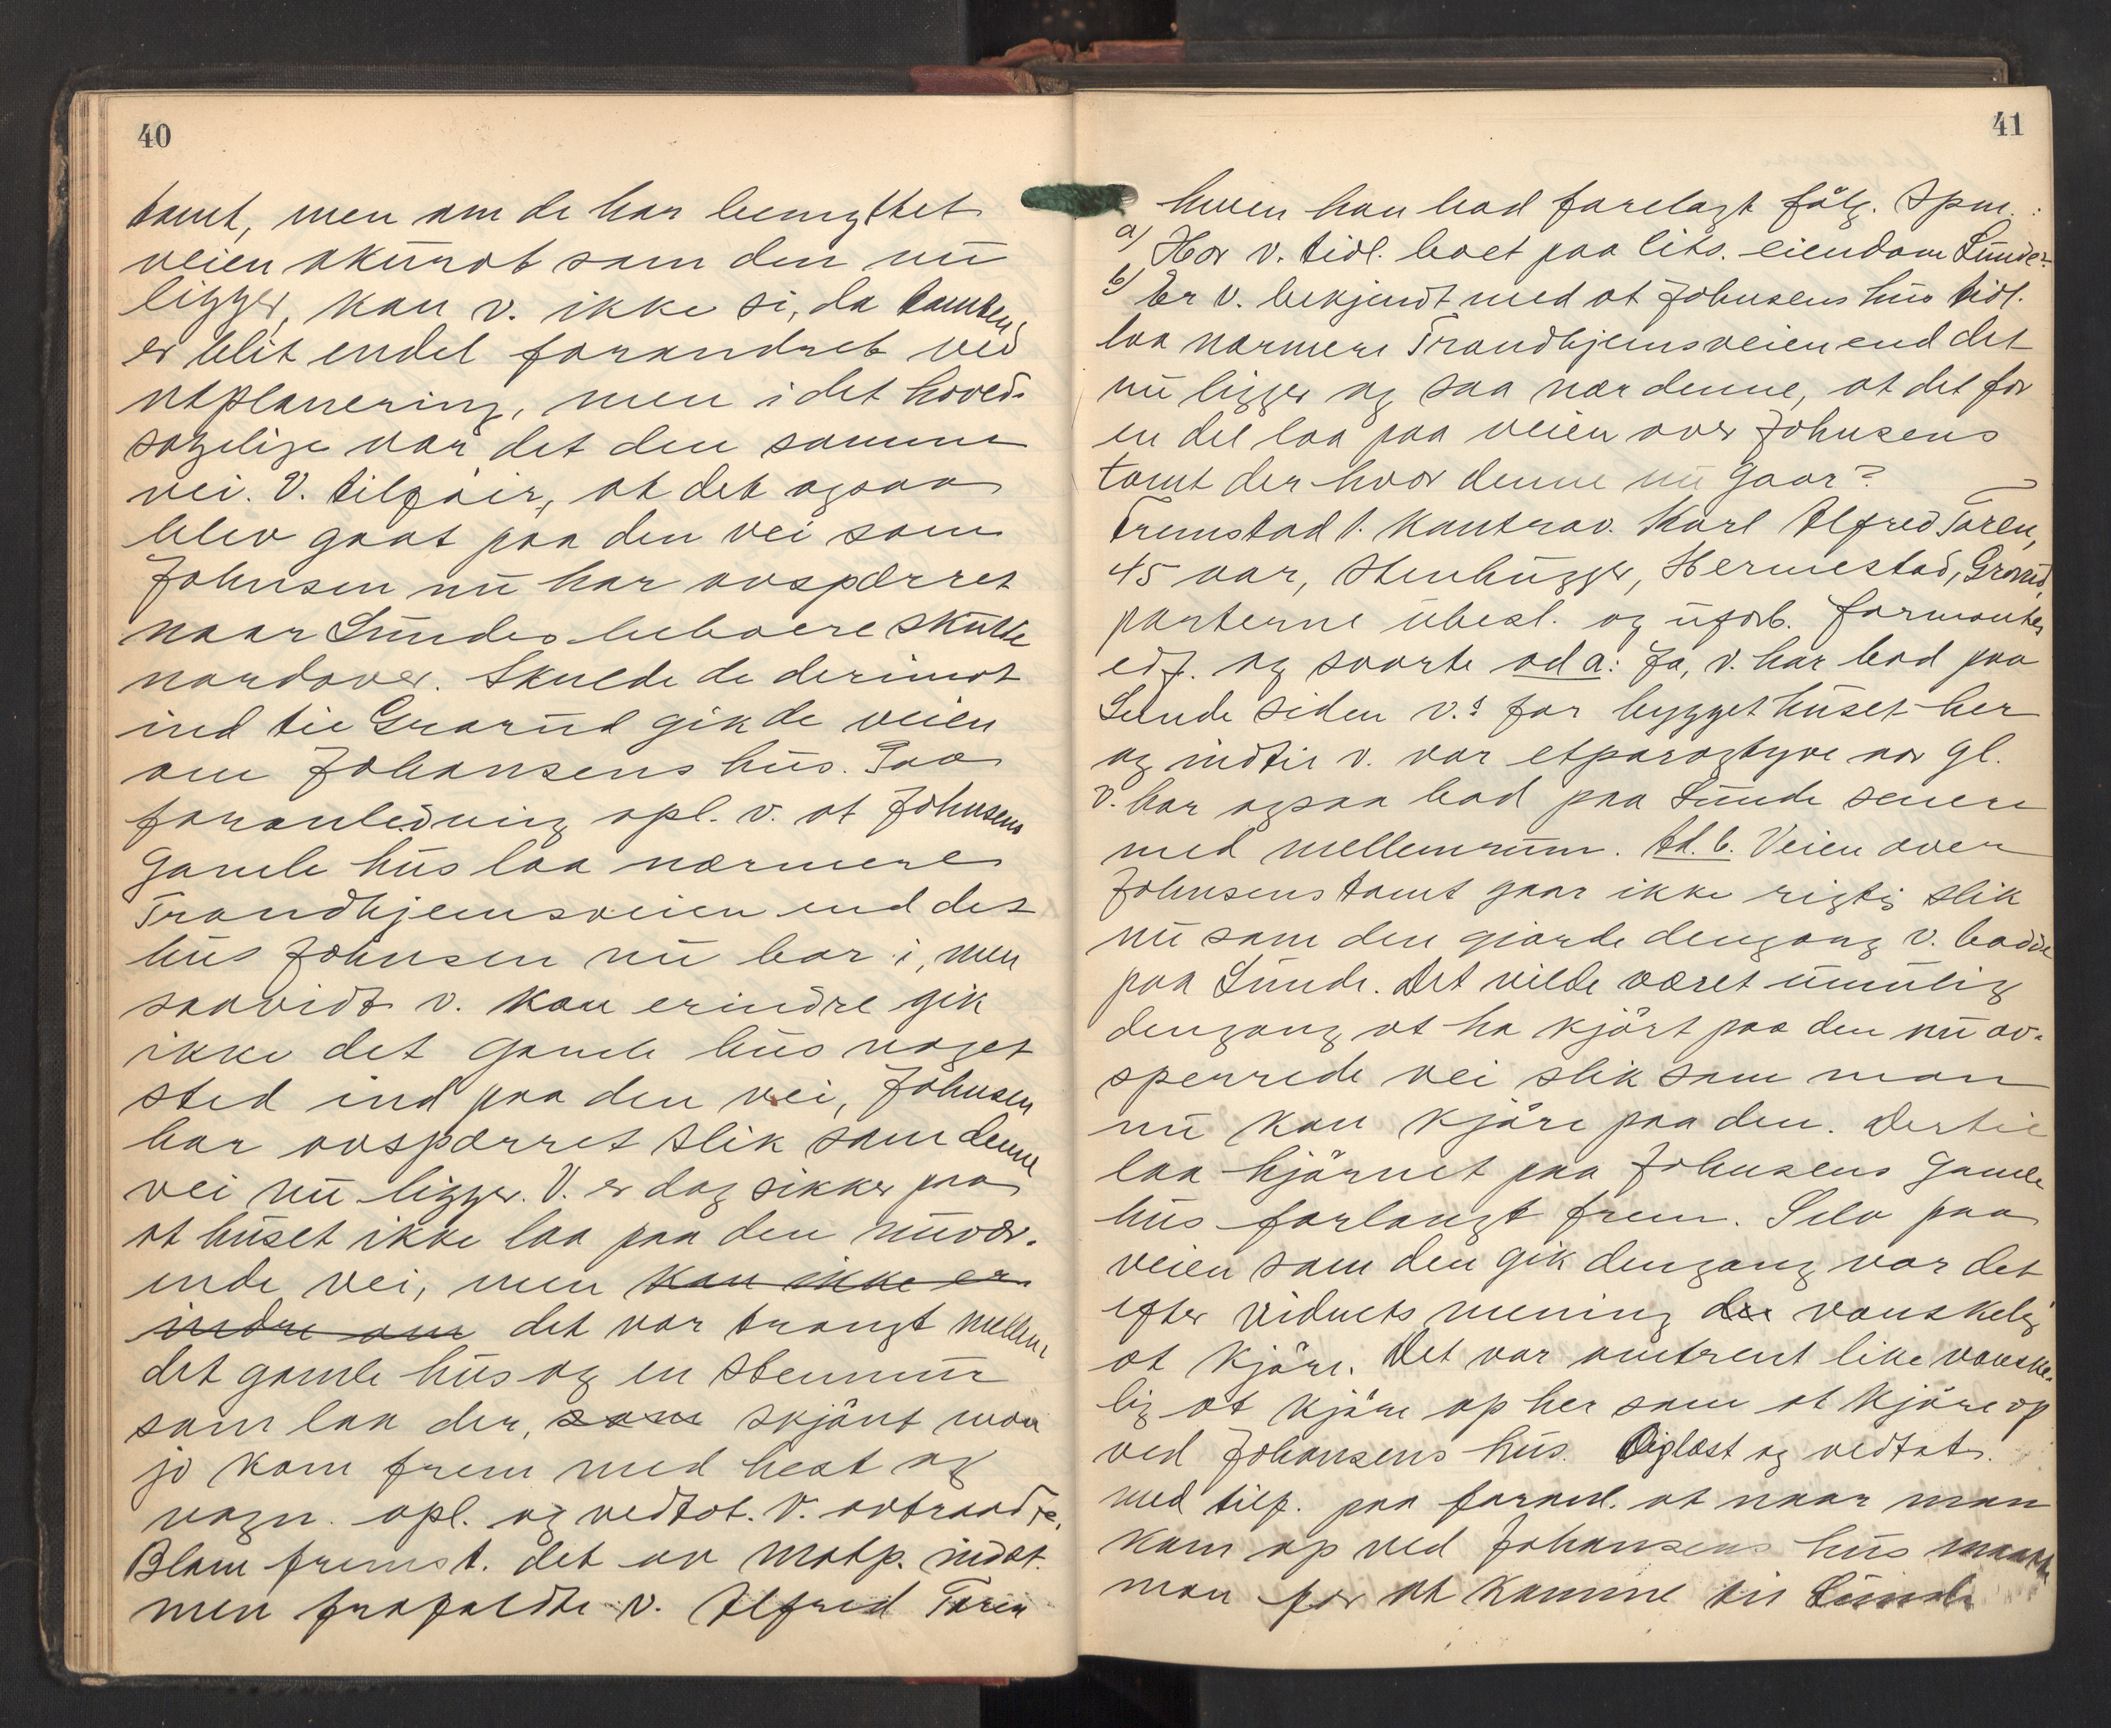 40
tomt, men om de har benyttet
veien akurat som den nu
ligger, kan v. ikke si, da tomten
er blit endel forandret ved
utplanering, men i det hoved-
sagelige var det den samme
vei. V. tilføier, at det ogsaa
blev gaat paa den vei som
Johnsen nu har avspærret
naar Sundes beboere skulde
nordover. Skulde de derimot
ind til Grorud gik de veien
om Johansens hus. Paa
foranledning opl. v. at Johnsens
gamle hus laa nærmere
Trondhjemsveien end det
hus Johnsen nu bor i, men
saavidt v. kan erindre gik
ikke det gamle hus noget
sted ind paa den vei, Johnsen
har avspærret slik som denne
vei nu ligger. V. er dog sikker paa
at huset ikke laa paa den nuvær-
ende vei, men kan ikke er-
indre om det var trangt mellem
det gamle hus og en stenmur
som laa der, som skjønt man
jo kom frem med hest og
vogn. Opl. og vedtat. V. avtraadte.
Blom fremst. det av motp. indst.
men frafaldte v. Alfred Toren
41
hvem han bad forelagt følg. spm.:
a) Har v. tidl. boet paa cits. eiendom Sunde?
b) Er v. bekjendt med at Johnsens hus tidl.
laa nærmere Trondhjemsveien end det
nu ligger og saa nær denne, at det for
en del laa paa veien over Johnsens
tomt der hvor denne nu gaar?
Fremstod 1. kontrav. Karl Alfred Toren,
45 aar, stenhugger, Hermestad, Grorud,
parterne ubesl. og uforb. formantes
edf. og svarte ad a: Ja, v. har bod paa
Sunde siden v.s far bygget huset her
og indtil v. var etparogtyve aar gl.
V. har ogsaa bod paa Sunde senere
med mellemrum. Ad. b. Veien over
Johnsens tomt gaar ikke rigtig slik
nu som den gjorde dengang v. bodde
paa Sunde. Det vilde været umulig
dengang at ha kjørt paa den nu av-
sperrede vei slik som man
nu kan kjøre paa den. Dertil
laa hjørnet paa Johnsens gamle
hus forlangt frem. Selv paa
veien som den gik dengang var det
efter vidnets mening der vanskelig
at kjøre. Det var omtrent like vanske-
lig at kjøre op her som at kjøre op
ved Johansens hus. Oplæst og vedtat.
med tilf. paa foranl. at naar man
kom op ved Johansens hus maatte
man for at komme til Sunde